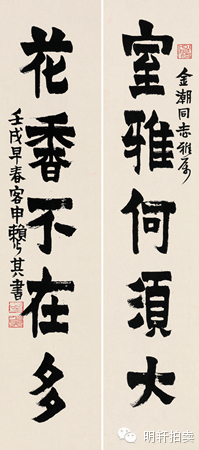 室雅何須大
金潮同志雅属
花香不在多
壬戌早春客申賴少其書
明轩拍卖